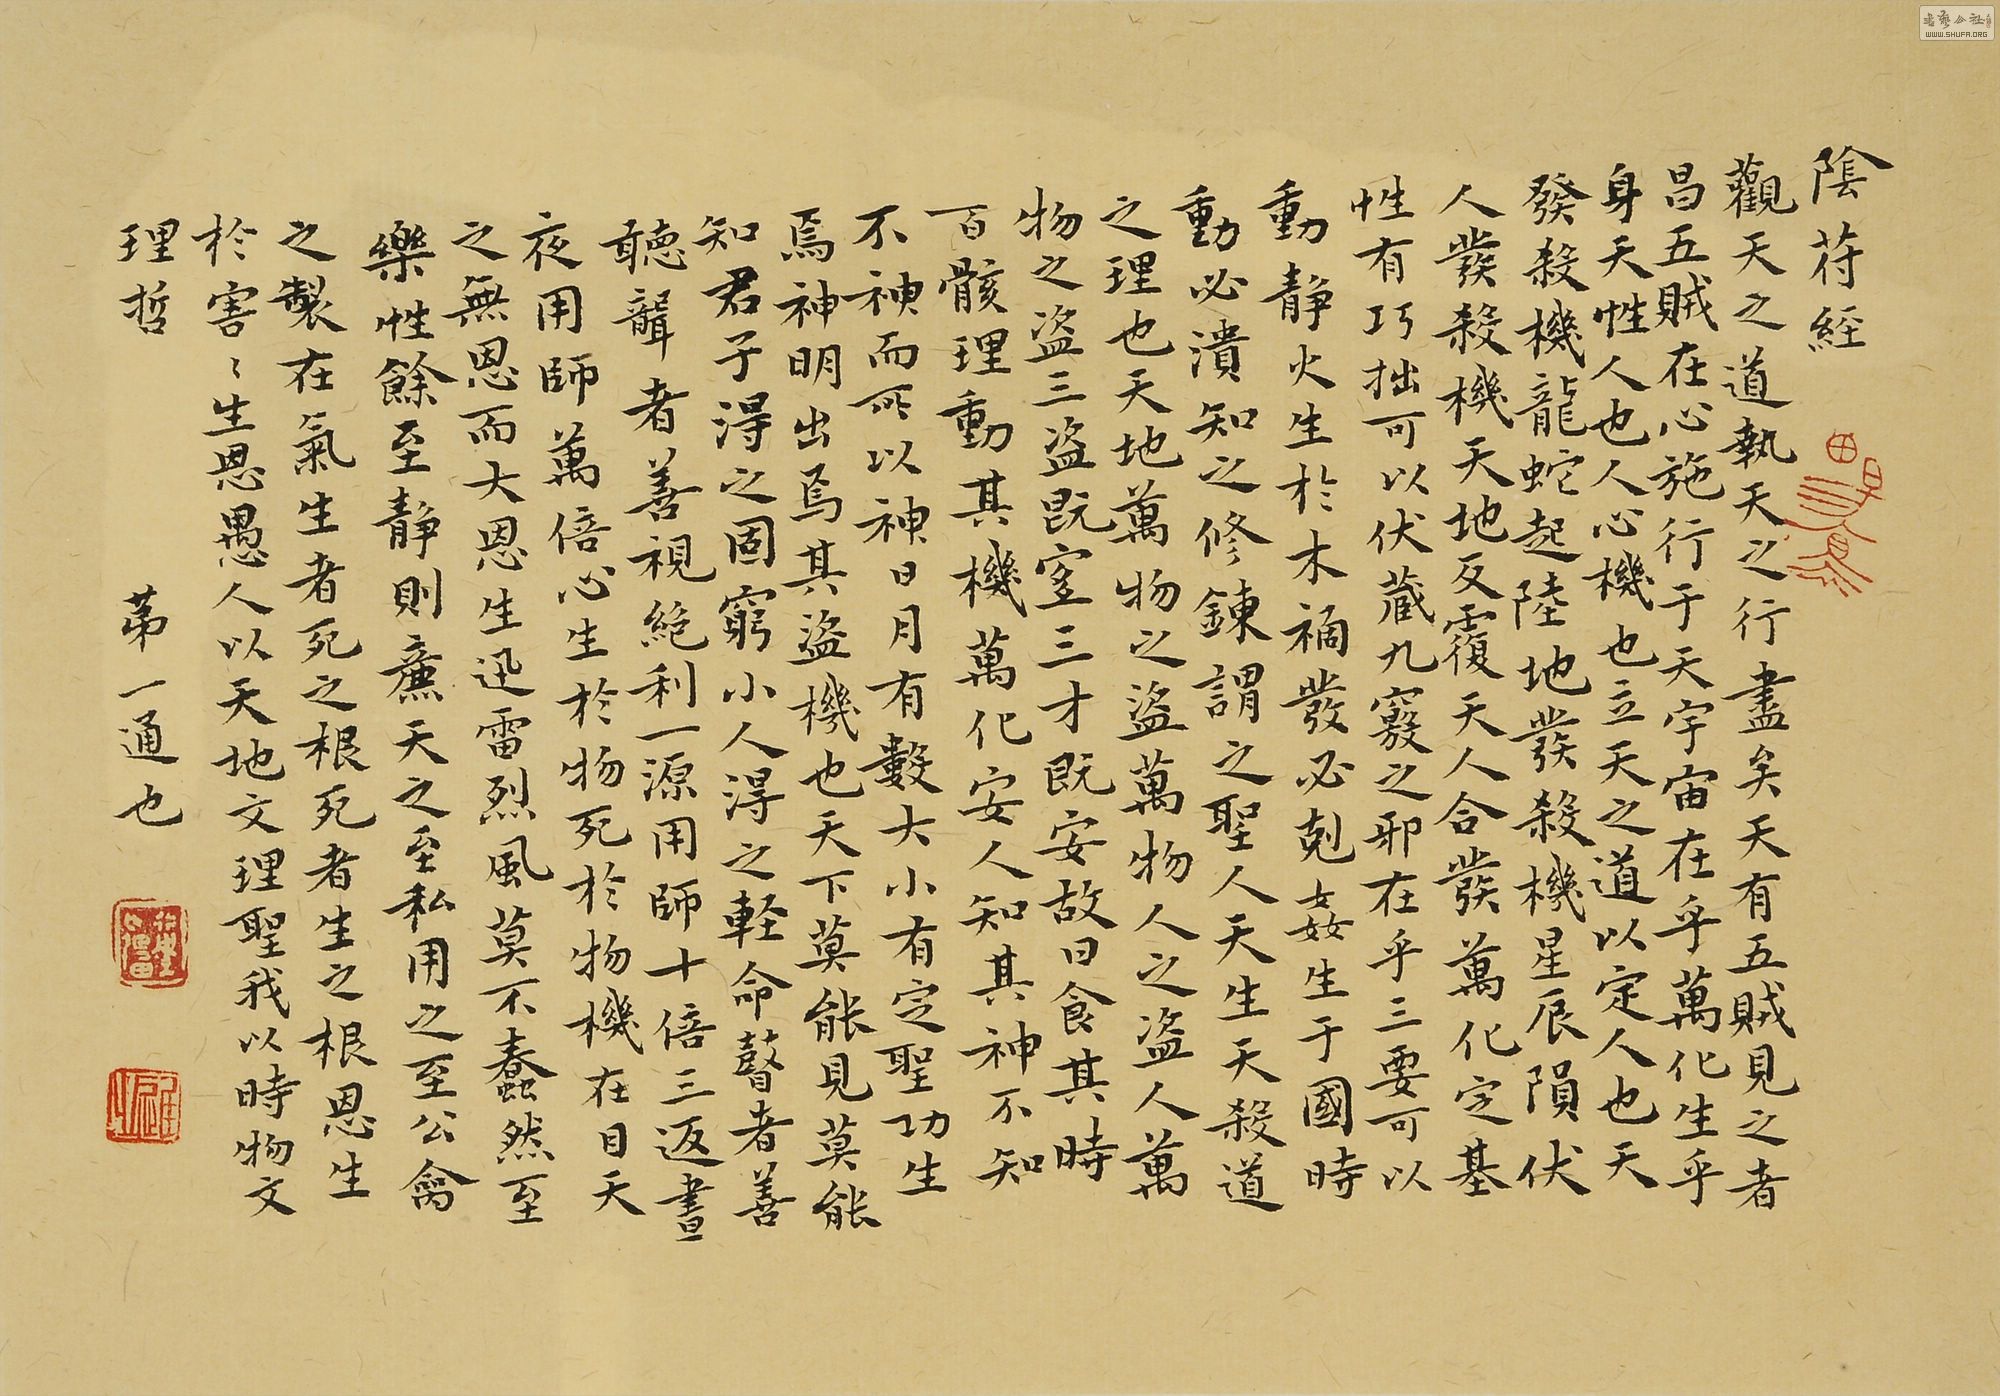 陰符經
觀天之道執天之行盡矣天有五賊見之者
昌五賊在心施行于天宇宙在乎萬化生乎
身天性人也人心機也立天之道以定人也天
發殺機龍蛇起陸地發殺機星辰隕伏
人發殺機天地反覆天人合發萬化定基
性有巧拙可以伏藏九竅之邪在乎三要可以
動靜火生於木禍發必剋姦生于國時
動必潰知之修鍊謂之聖人天生天殺道
之理也天地萬物之盜萬物人之盜人萬
物之盜三盜既宜三才既安故曰食其時
百骸理動其機萬化安人知其神不知
不神而所以神日月有數大小有定聖功生
焉神明出焉其盜機也天下莫能見莫能
知君子得之固窮小人得之輕命瞽者善
聽聾者善視絕利一源用師十倍三返晝
夜用師萬倍心生於物死於物機在目天
之無恩而大恩生迅雷烈風莫不蠢然至
樂性餘至靜則廉天之至私用之至公禽
之製在氣生者死之根死者生之根恩生
於害害生恩愚人以天地文理聖我以時物文
理哲
第一通也
書藝公社
WWW.SHUFA.ORG